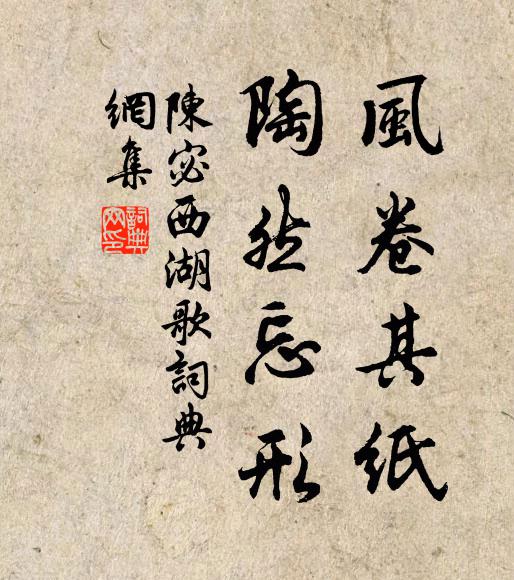 風卷其紙
陶然忘形
陳宓西湖歌詞典
網集
詞典
网印